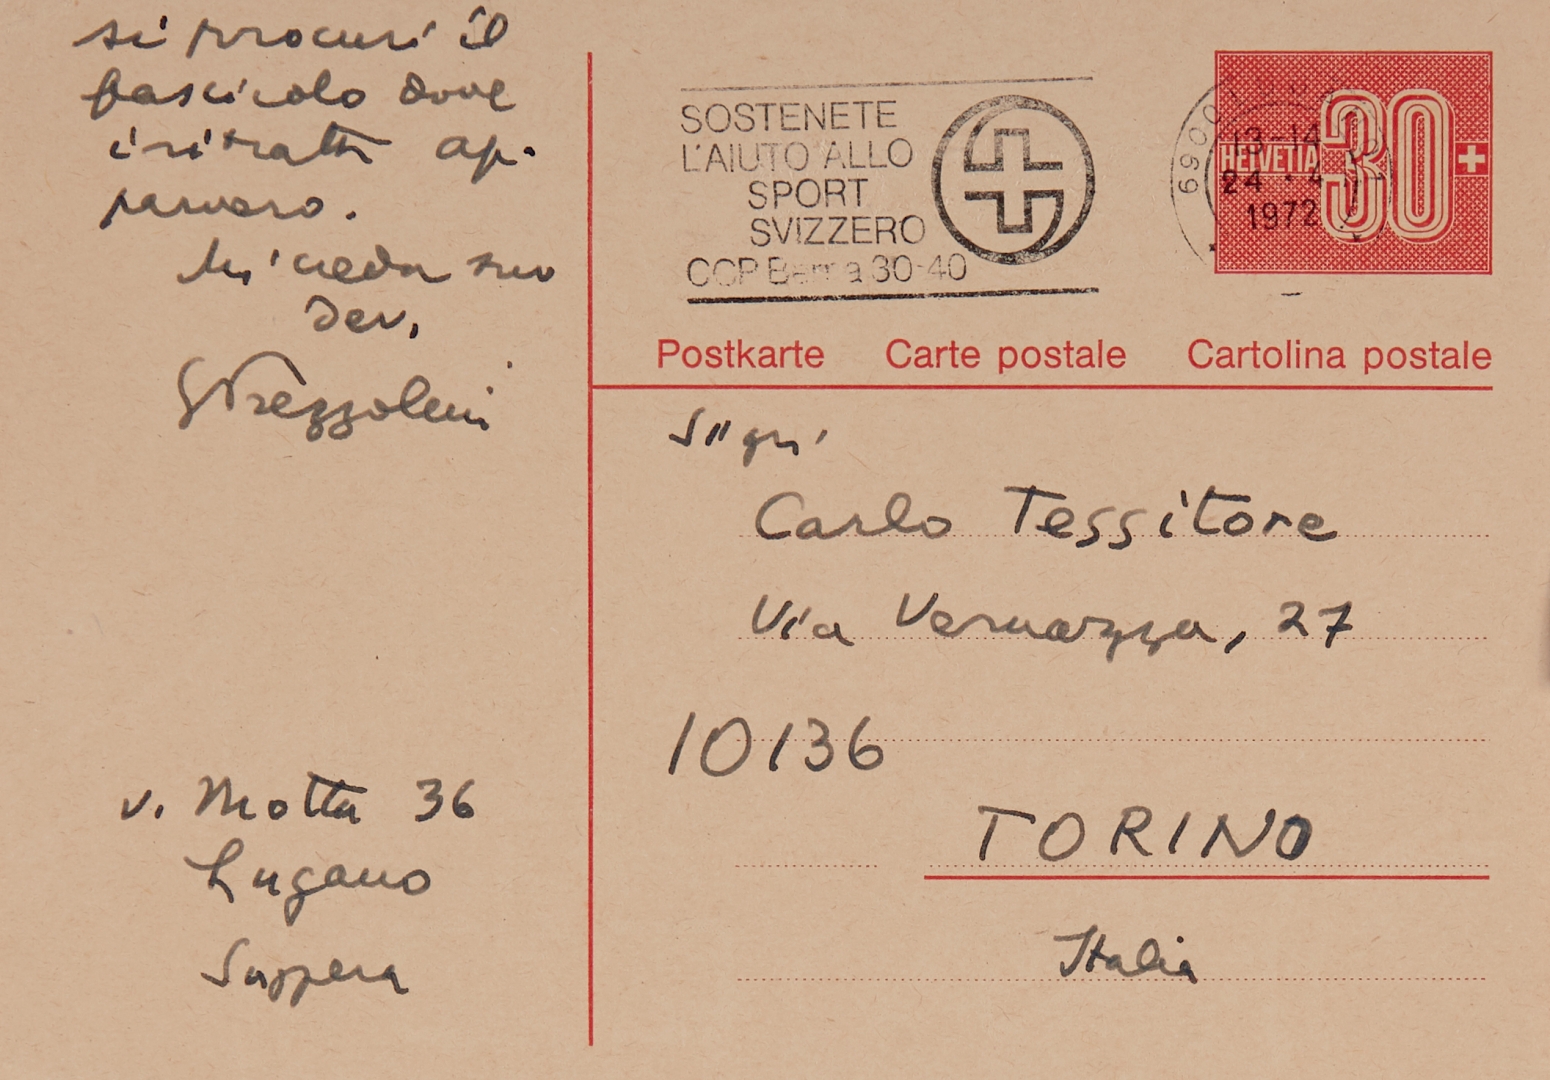 si procuri il
fascicolo dove
i ritratti ap-
parvero.
Mi creda suo
dev.
GPrezzolini
v. Motta 36
Lugano
Svizzera
SOSTENETE
L'AIUTO ALLO
SPORT
SVIZZERO
CCP Berna 30-40
6900
13-14
24.4
1972
HELVETIA 30
Postkarte Carte postale Cartolina postale
Sign.
Carlo Tessitore
Via Vernazza, 27
10136
TORINO
Italia